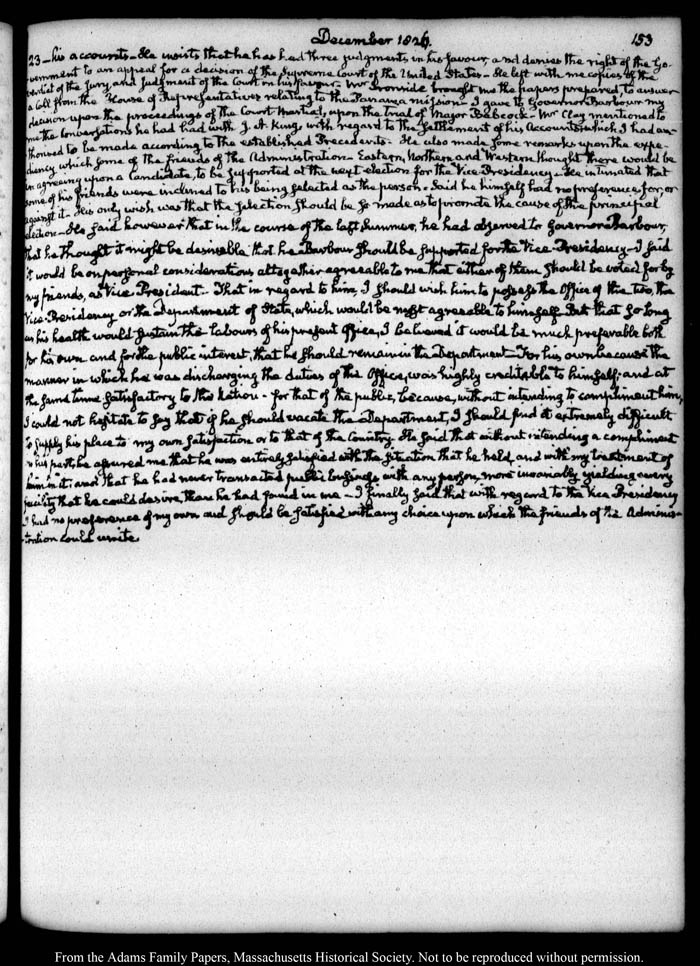 December 1826.
153
23 – his accounts – He insists that he has had three judgments in his favour, and denies the right of the Go-
vernment to an appeal for a decision of the Supreme Court of the United States – He left with me copies of the
verdict of the Jury, and Judgment of the Court in his favour – Mr Ironside brought me the papers prepared, to answer
a Call from the House of Representatives relating to the Panama mission – I gave to Governor Barbour my
decision upon the proceedings of the Court Martial, upon the trial of Major Babcock – Mr Clay mentioned to
me the conversations he had had with J. A. King, with regard to the settlement of his Accounts, which I had au-
thorised to be made according to the established Precedents. He also made some remarks upon the expe-
diency which some of the friends of the Administration – Eastern, Northern and Western thought there would be
in agreeing upon a Candidate, to be supported at the next election for the Vice-Presidency – He intimated that
some of his friends were inclined to his being selected as the person – Said he himself had no preference for, or
against it. His only wish was that the selection should be so made as to promote the cause of the principal
election – He said however that in the course of the last Summer, he had observed to Governor Barbour,
that he thought it might be desirable that he Barbour should be supported for the Vice-Presidency – I said
it would be on personal considerations altogether agreeable to me that either of them should be voted for by
my friends, as Vice-President – That in regard to him, I should wish him to possess the Office of the two, the
Vice-Presidency or the Department of State, which would be most agreeable to himself. But that so long
as his health would sustain the labours of his present Office, I believed it would be much preferable both
for his own and for the public interest, that he should remain in the Department – For his own because the
manner in which he was discharging the duties of the Office, was highly creditable to himself, and at
the same time satisfactory to the Nation – for that of the public, because, without intending to compliment him,
I could not hesitate to say that if he should vacate the Department, I should find it extremely difficult
to supply his place to my own satisfaction or to that of the Country. He said that without intending a compliment
on his part, he assured me that he was entirely satisfied with the situation that he held, and with my treatment of
him in it; and that he had never transacted public business with any person, more invariably yielding every
facility that he could desire, than he had found in me – I finally said that with regard to the Vice Presidency
I had no preference of my own and should be satisfied with any choice upon which the friends of the Adminis-
tration could unite.
From the Adams Family Papers, Massachusetts Historical Society. Not to be reproduced without permission.